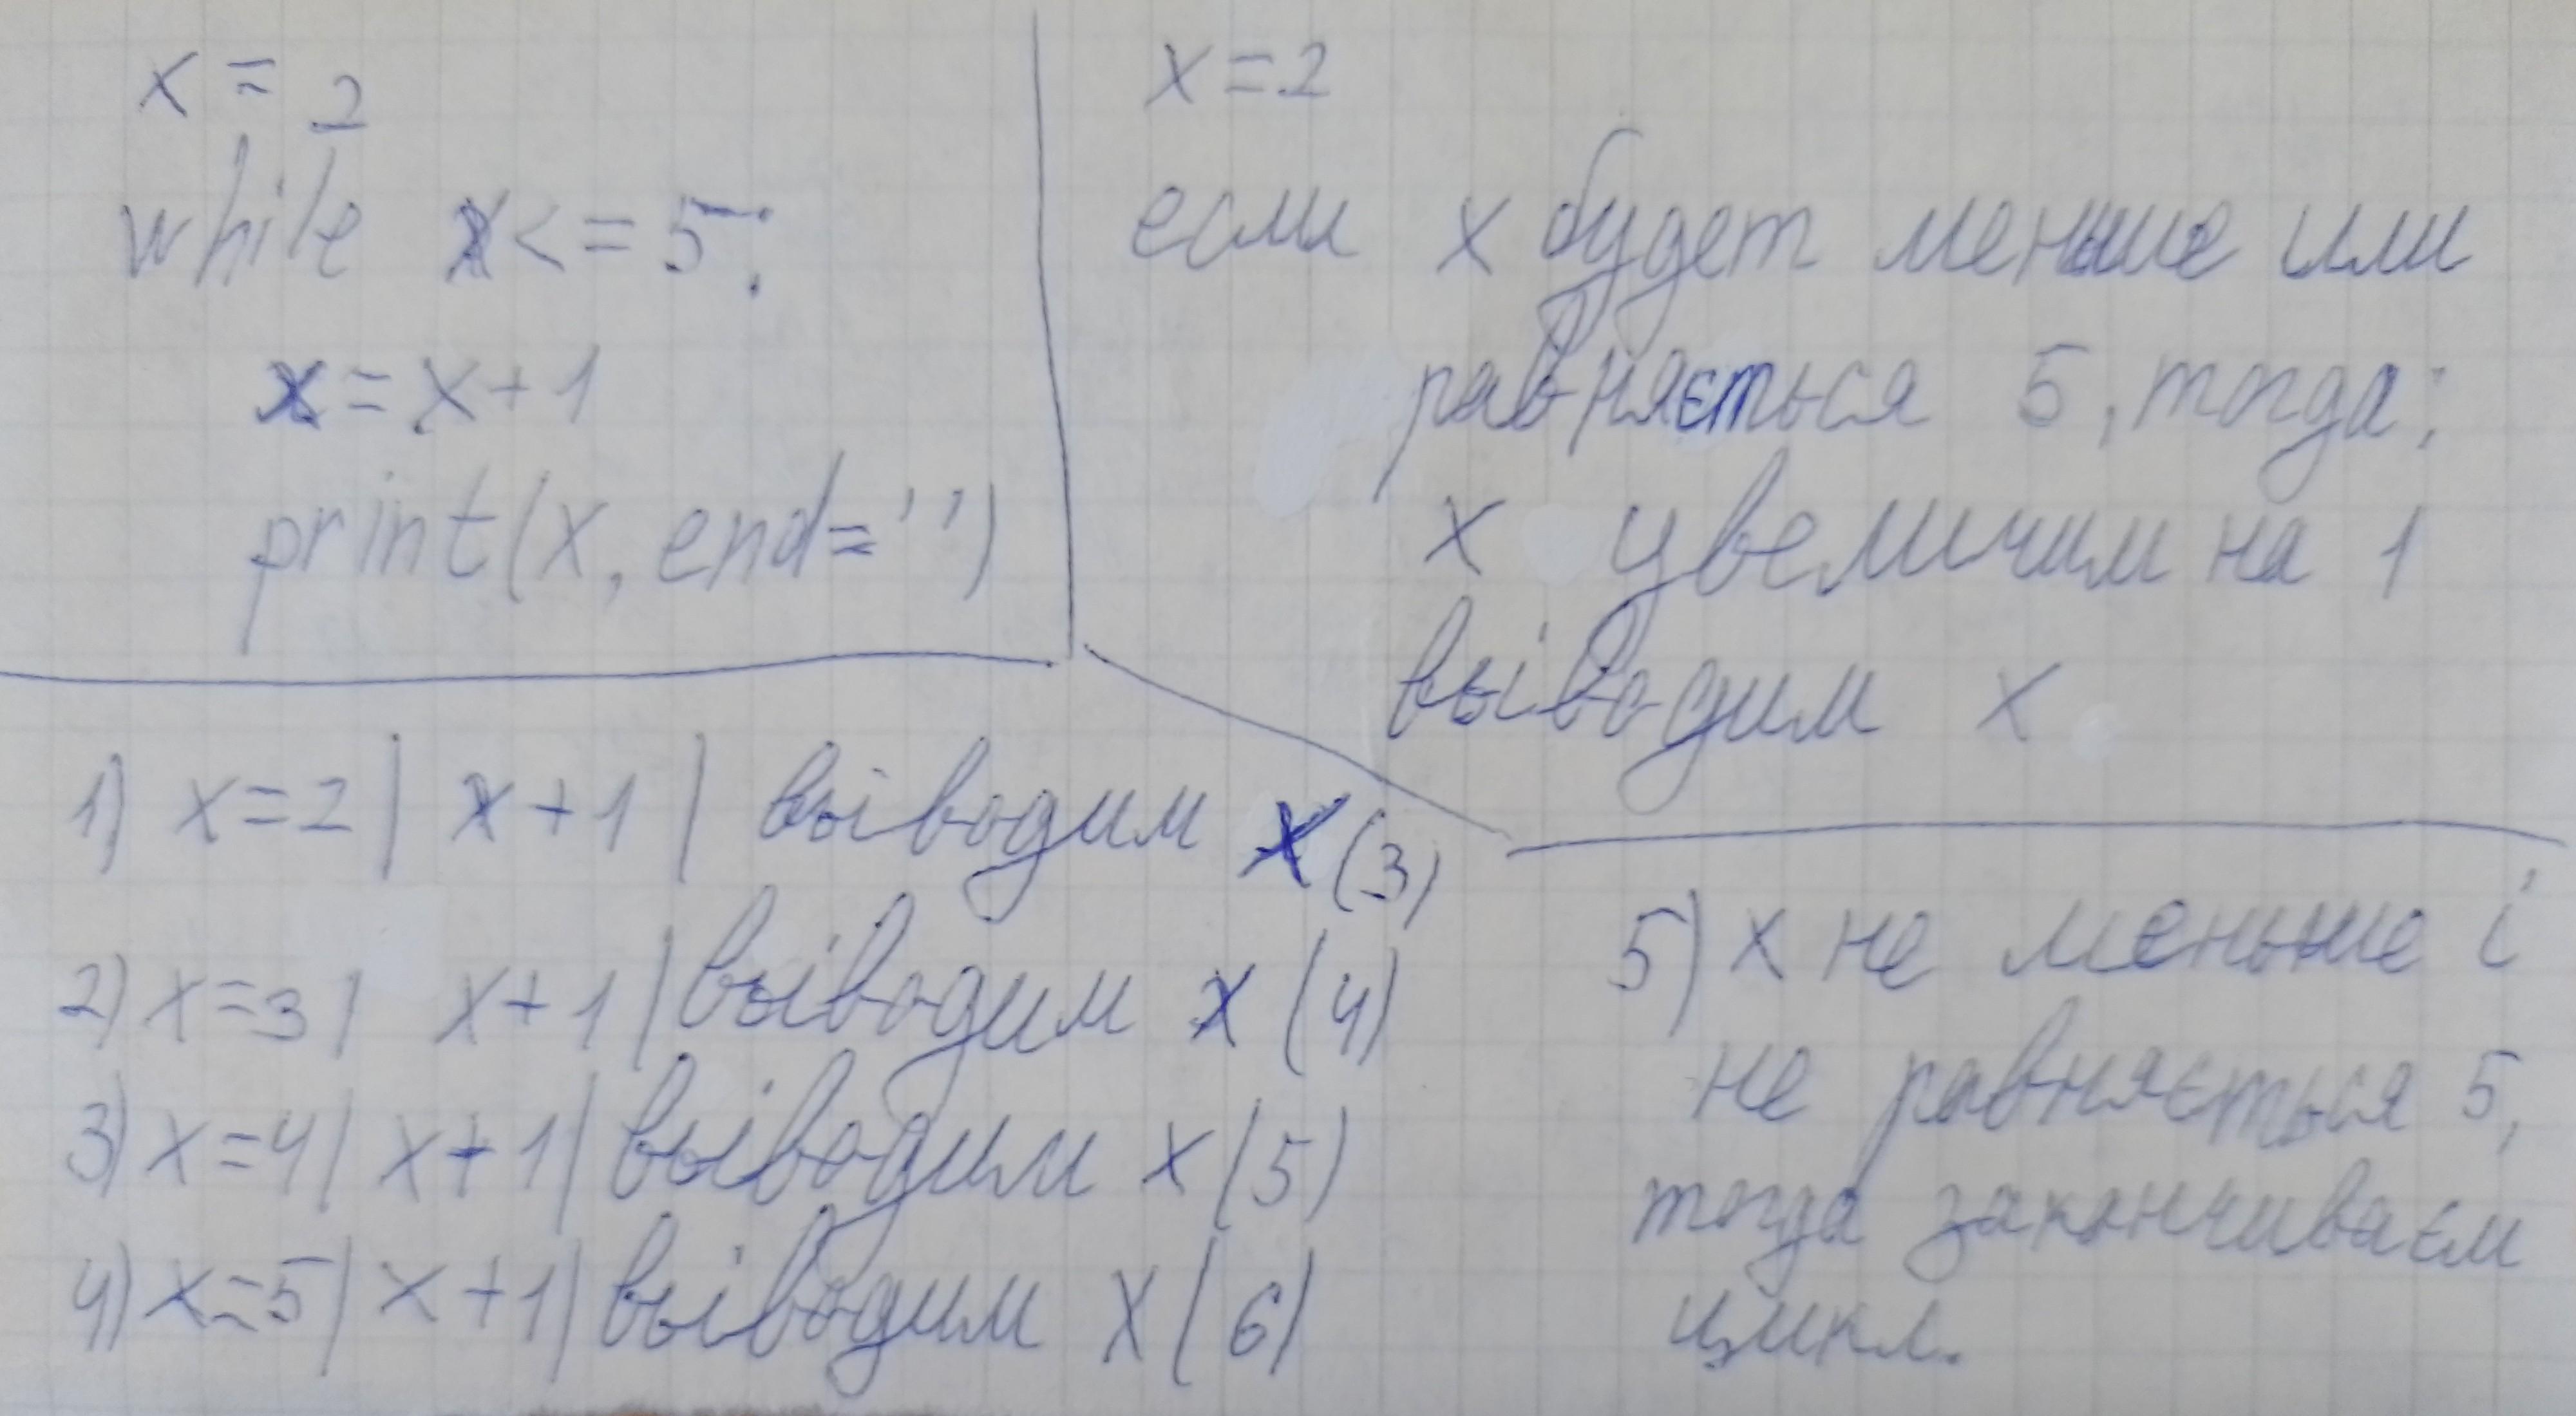 x = 2
while x <= 5:
x = x + 1
print(x, end='')
x = 2
если x будет меньше или
равняється 5, тогда:
x увеличим на 1
выіводим x
1) x=2 | x+1 | выіводим x (3)
2) x=3 | x+1 | выіводим x (4)
3) x=4 | x+1 | выіводим x (5)
4) x=5 | x+1 | выіводим x (6)
5) x не меньше і
не равняється 5,
тогда заканчиваєм
цикл.